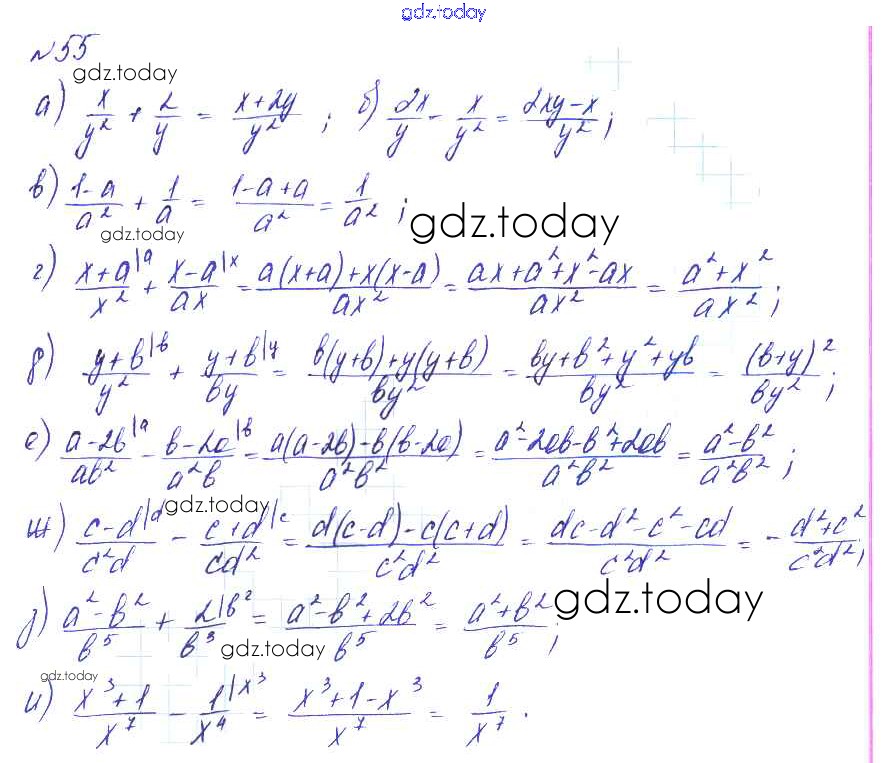 gdz.today
№55
gdz.today
а) x/y² + 2/y = (x+2y)/y² ; б) 2x/y - x/y² = (2xy-x)/y² ;
в) (1-a)/a² + 1/a = (1-a+a)/a² = 1/a² ;
gdz.today
gdz.today
г) (x+a)/x² |a + (x-a)/ax |x = (a(x+a)+x(x-a))/ax² = (ax+a²+x²-ax)/ax² = (a²+x²)/ax² ;
д) (y+b)/y² |b + (y+b)/by |y = (b(y+b)+y(y+b))/by² = (by+b²+y²+yb)/by² = (b+y)²/by² ;
е) (a-2b)/ab² |a - (b-2a)/a²b |b = (a(a-2b)-b(b-2a))/a²b² = (a²-2ab-b²+2ab)/a²b² = (a²-b²)/a²b² ;
gdz.today
ж) (c-d)/c²d |d - (c+d)/cd² |c = (d(c-d)-c(c+d))/c²d² = (dc-d²-c²-cd)/c²d² = -(d²+c²)/c²d² ;
gdz.today
з) (a²-b²)/b⁵ + 2/b³ |b² = (a²-b²+2b²)/b⁵ = (a²+b²)/b⁵ ;
gdz.today
gdz.today
и) (x³+1)/x⁷ - 1/x⁴ |x³ = (x³+1-x³)/x⁷ = 1/x⁷ .